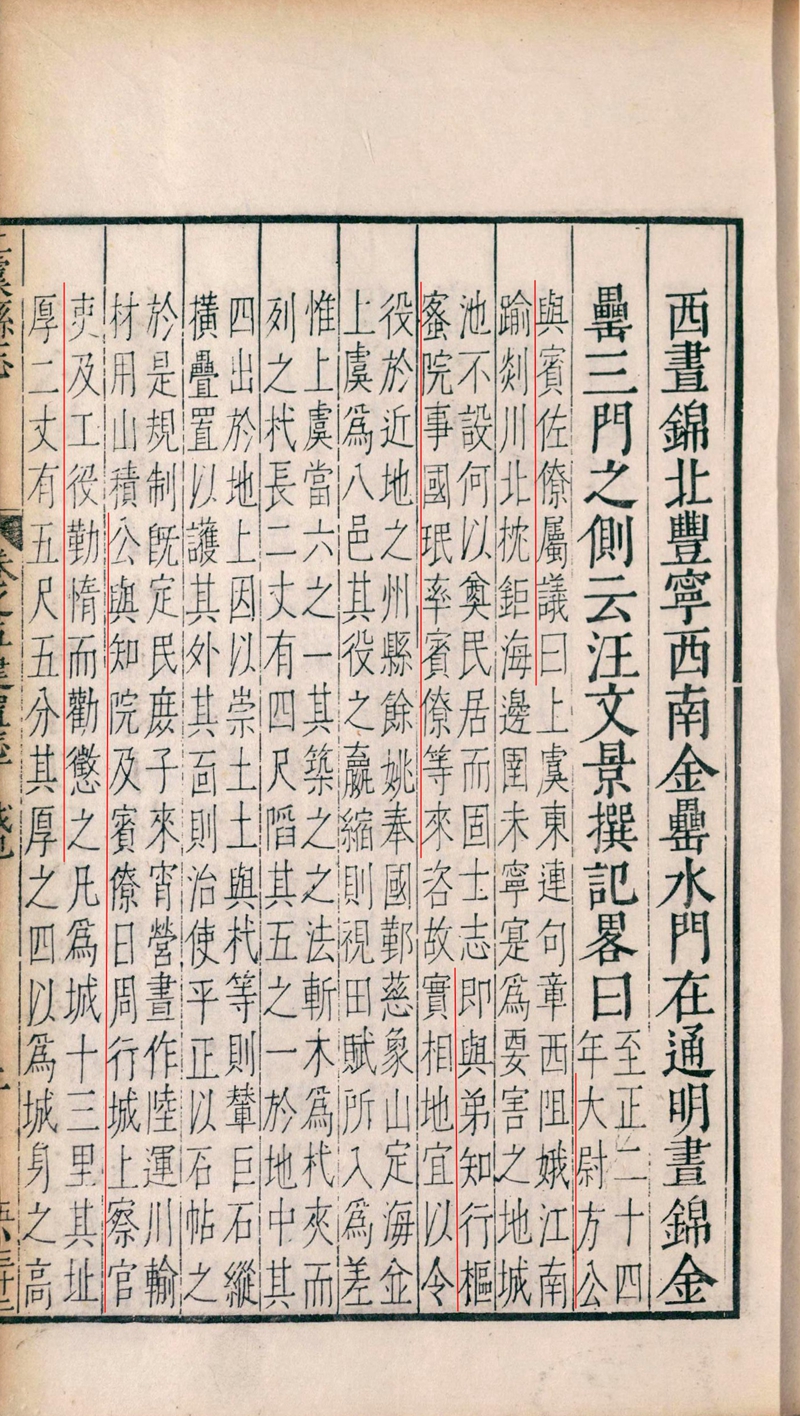 西晝錦北豐寧西南金罍水門在通明晝錦金
罍三門之側云汪文景撰記畧曰
至正二十四
年大尉方公
與賓佐僚屬議曰上虞東連句章西阻娥江南
踰剡川北枕鉅海邊圉未寧寔為要害之地城
池不設何以奠民居而固士志即與弟知行樞
蜜院事國珉率賓僚等來咨故實相地宜以令
役於近地之州縣餘姚奉國鄞慈象山定海㑒
上虞為八邑其役之贏縮則視田賦所入為差
惟上虞當六之一其築之之法斬木為杙夾而
列之杙長二丈有四尺䧟其五之一於地中其
四出於地上因以崇土土與杙等則輦巨石縱
橫疊置以護其外其靣則治使平正以石帖之
於是規制旣定民庻子來宵營晝作陸運川輸
材用山積公與知院及賓僚日周行城上察官
吏及工役勤惰而勸懲之凡為城十三里其址
厚二丈有五尺五分其厚之四以為城身之高